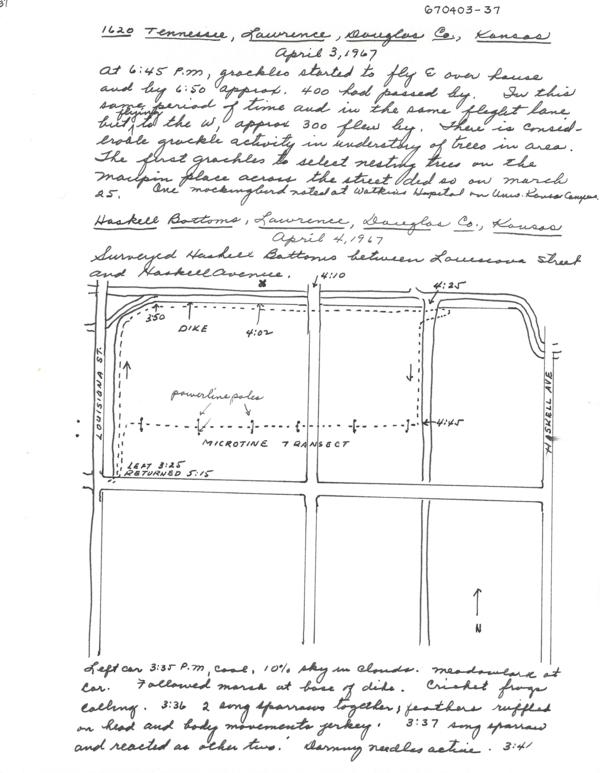 37
670403-37
1620 Tennessee, Lawrence, Douglas Co., Kansas
April 3, 1967
At 6:45 P.M, grackles started to fly E over house
and by 6:50 approx. 400 had passed by. In this
same period of time and in the same flight lane,
but flying to the W, approx 300 flew by. There is consid-
erable grackle activity in understory of trees in area.
The first grackles to select nesting trees on the
Maupin place across the street did so on March
25. One mockingbird noted at Watkins Hospital on Univ. Kansas Campus.
Haskell Bottoms, Lawrence, Douglas Co., Kansas
April 4, 1967
Surveyed Haskell Bottoms between Louisiana Street
and Haskell Avenue.
4:10
4:25
350
DIKE
4:02
LOUISIANA ST.
HASKELL AVE
powerline poles
4:45
MICROTINE TRANSECT
LEFT 3:25
RETURNED 5:15
N
Left car 3:35 P.M, cool, 10% sky in clouds. Meadowlark at
car. Followed marsh at base of dike. Cricket frogs
calling. 3:36 2 song sparrows together, feathers ruffled
on head and body movements jerkey. 3:37 song sparrow
and reacted as other two. Darning needles active. 3:41